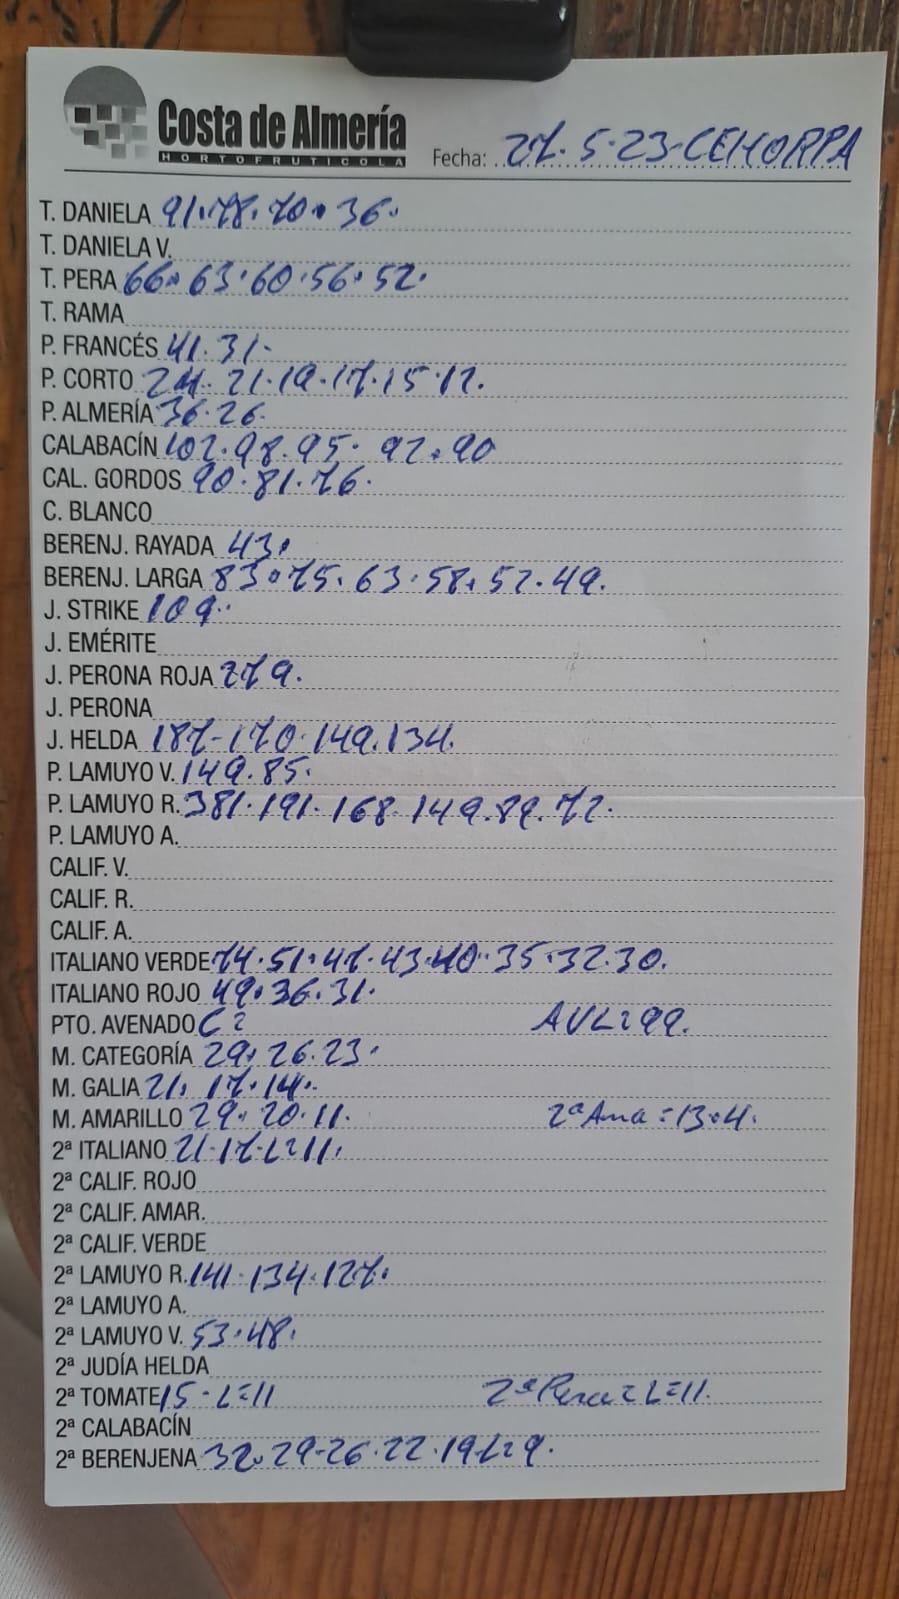 Costa de Almería
HORTOFRUTICOLA
Fecha: 27.5.23-CEHORPA
T. DANIELA 91.78.70.36.
T. DANIELA V.
T. PERA 66.63.60.56.52.
T. RAMA
P. FRANCÉS 41.31.
P. CORTO 24.21.19.17.15.12.
P. ALMERÍA 36.26.
CALABACÍN 102.98.95.92.90
CAL. GORDOS 90.81.76.
C. BLANCO
BERENJ. RAYADA 43.
BERENJ. LARGA 83.75.63.58.52.49.
J. STRIKE 109.
J. EMÉRITE
J. PERONA ROJA 279.
J. PERONA
J. HELDA 187-170.149.134.
P. LAMUYO V. 149.85.
P. LAMUYO R. 381.191.168.149.89.72.
P. LAMUYO A.
CALIF. V.
CALIF. R.
CALIF. A.
ITALIANO VERDE 74.51.47.43.40.35.32.30.
ITALIANO ROJO 49.36.31.
PTO. AVENADO
M. CATEGORÍA 29.26.23.
M. GALIA 21.17.14.
M. AMARILLO 29.20.11. 2ª Ama=13.4.
2ª ITALIANO 21.17.L=11.
2ª CALIF. ROJO
2ª CALIF. AMAR.
2ª CALIF. VERDE
2ª LAMUYO R. 141.134.127.
2ª LAMUYO A.
2ª LAMUYO V. 53.48.
2ª JUDÍA HELDA
2ª TOMATE 15-L=11 2ª Pera=L=11.
2ª CALABACÍN
2ª BERENJENA 32.29-26.22.19.L=9.